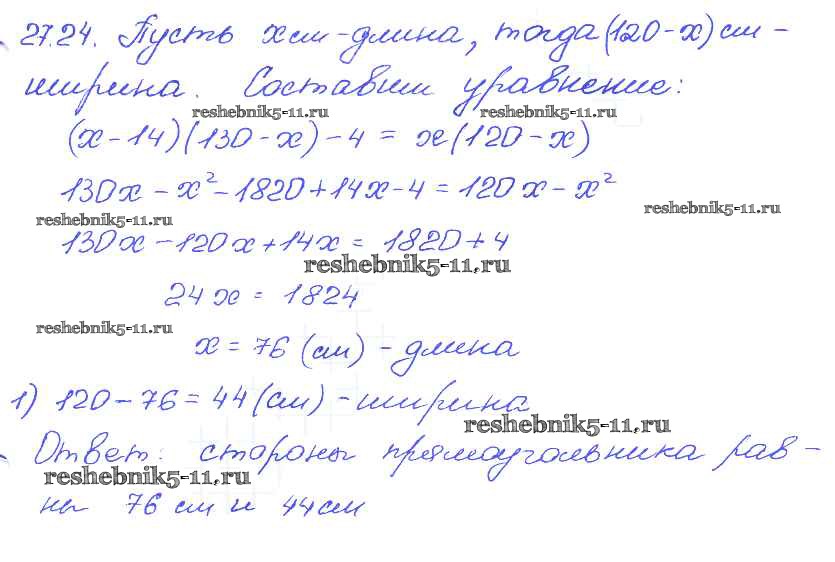 27.24. Пусть x см - длина, тогда (120 - x) см -
ширина. Составим уравнение:
reshebnik5-11.ru reshebnik5-11.ru
(x - 14)(130 - x) - 4 = x(120 - x)
130x - x² - 1820 + 14x - 4 = 120x - x²
reshebnik5-11.ru reshebnik5-11.ru
130x - 120x + 14x = 1820 + 4
reshebnik5-11.ru
24x = 1824
reshebnik5-11.ru
x = 76 (см) - длина
1) 120 - 76 = 44 (см) - ширина
reshebnik5-11.ru
Ответ: стороны прямоугольника рав-
reshebnik5-11.ru
ны 76 см и 44 см